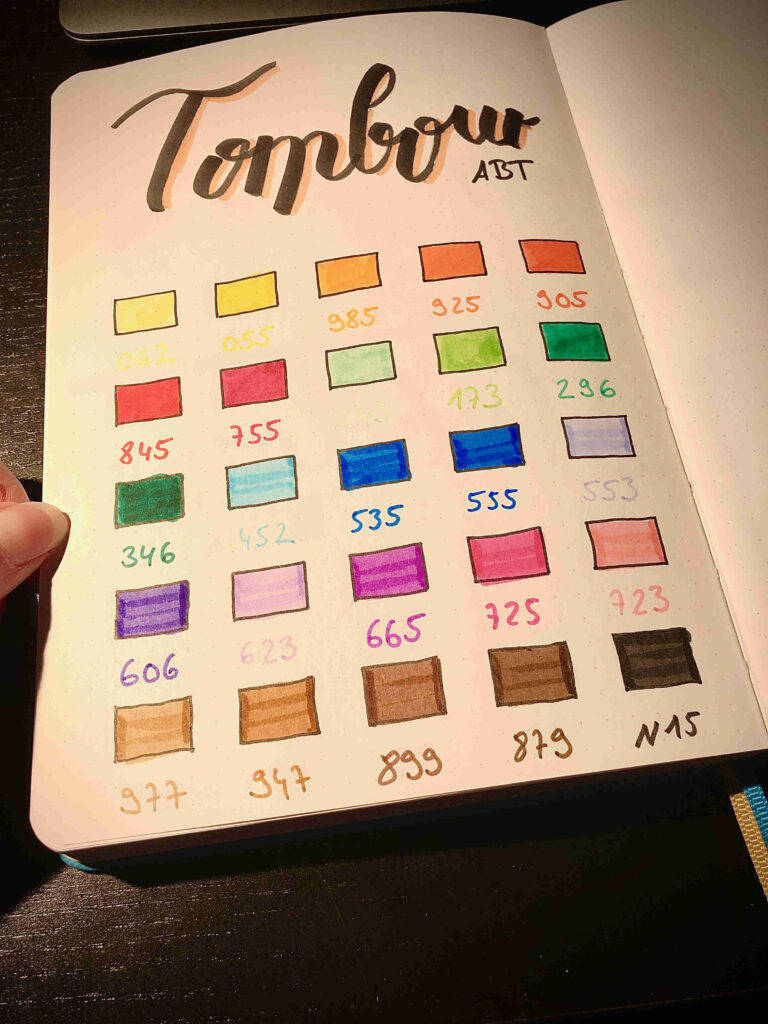 Tombow
ABT
062 055 985 925 905
845 755 173 296
346 452 535 555 553
606 623 665 725 723
977 947 899 879 N15